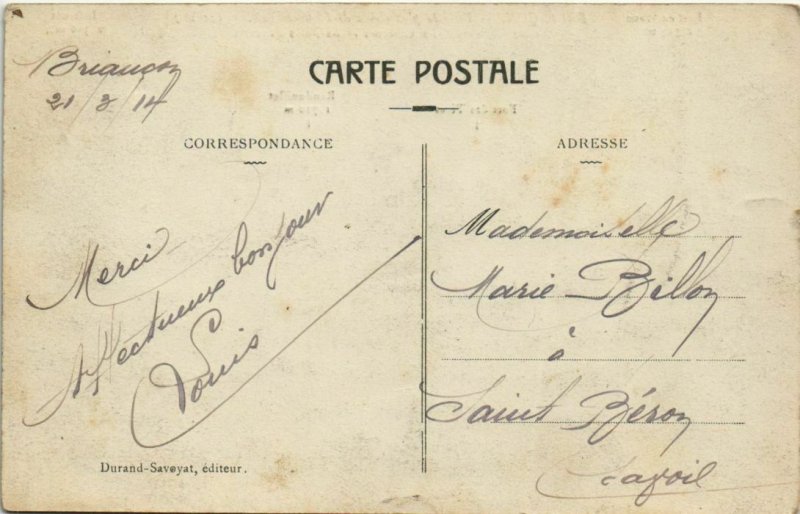 Briançon
21/3/14
CARTE POSTALE
CORRESPONDANCE
Merci
Affectueux bonjour
Louis
Durand-Savoyat, éditeur.
ADRESSE
Mademoiselle
Marie Billon
à
Saint Béron
Savoie